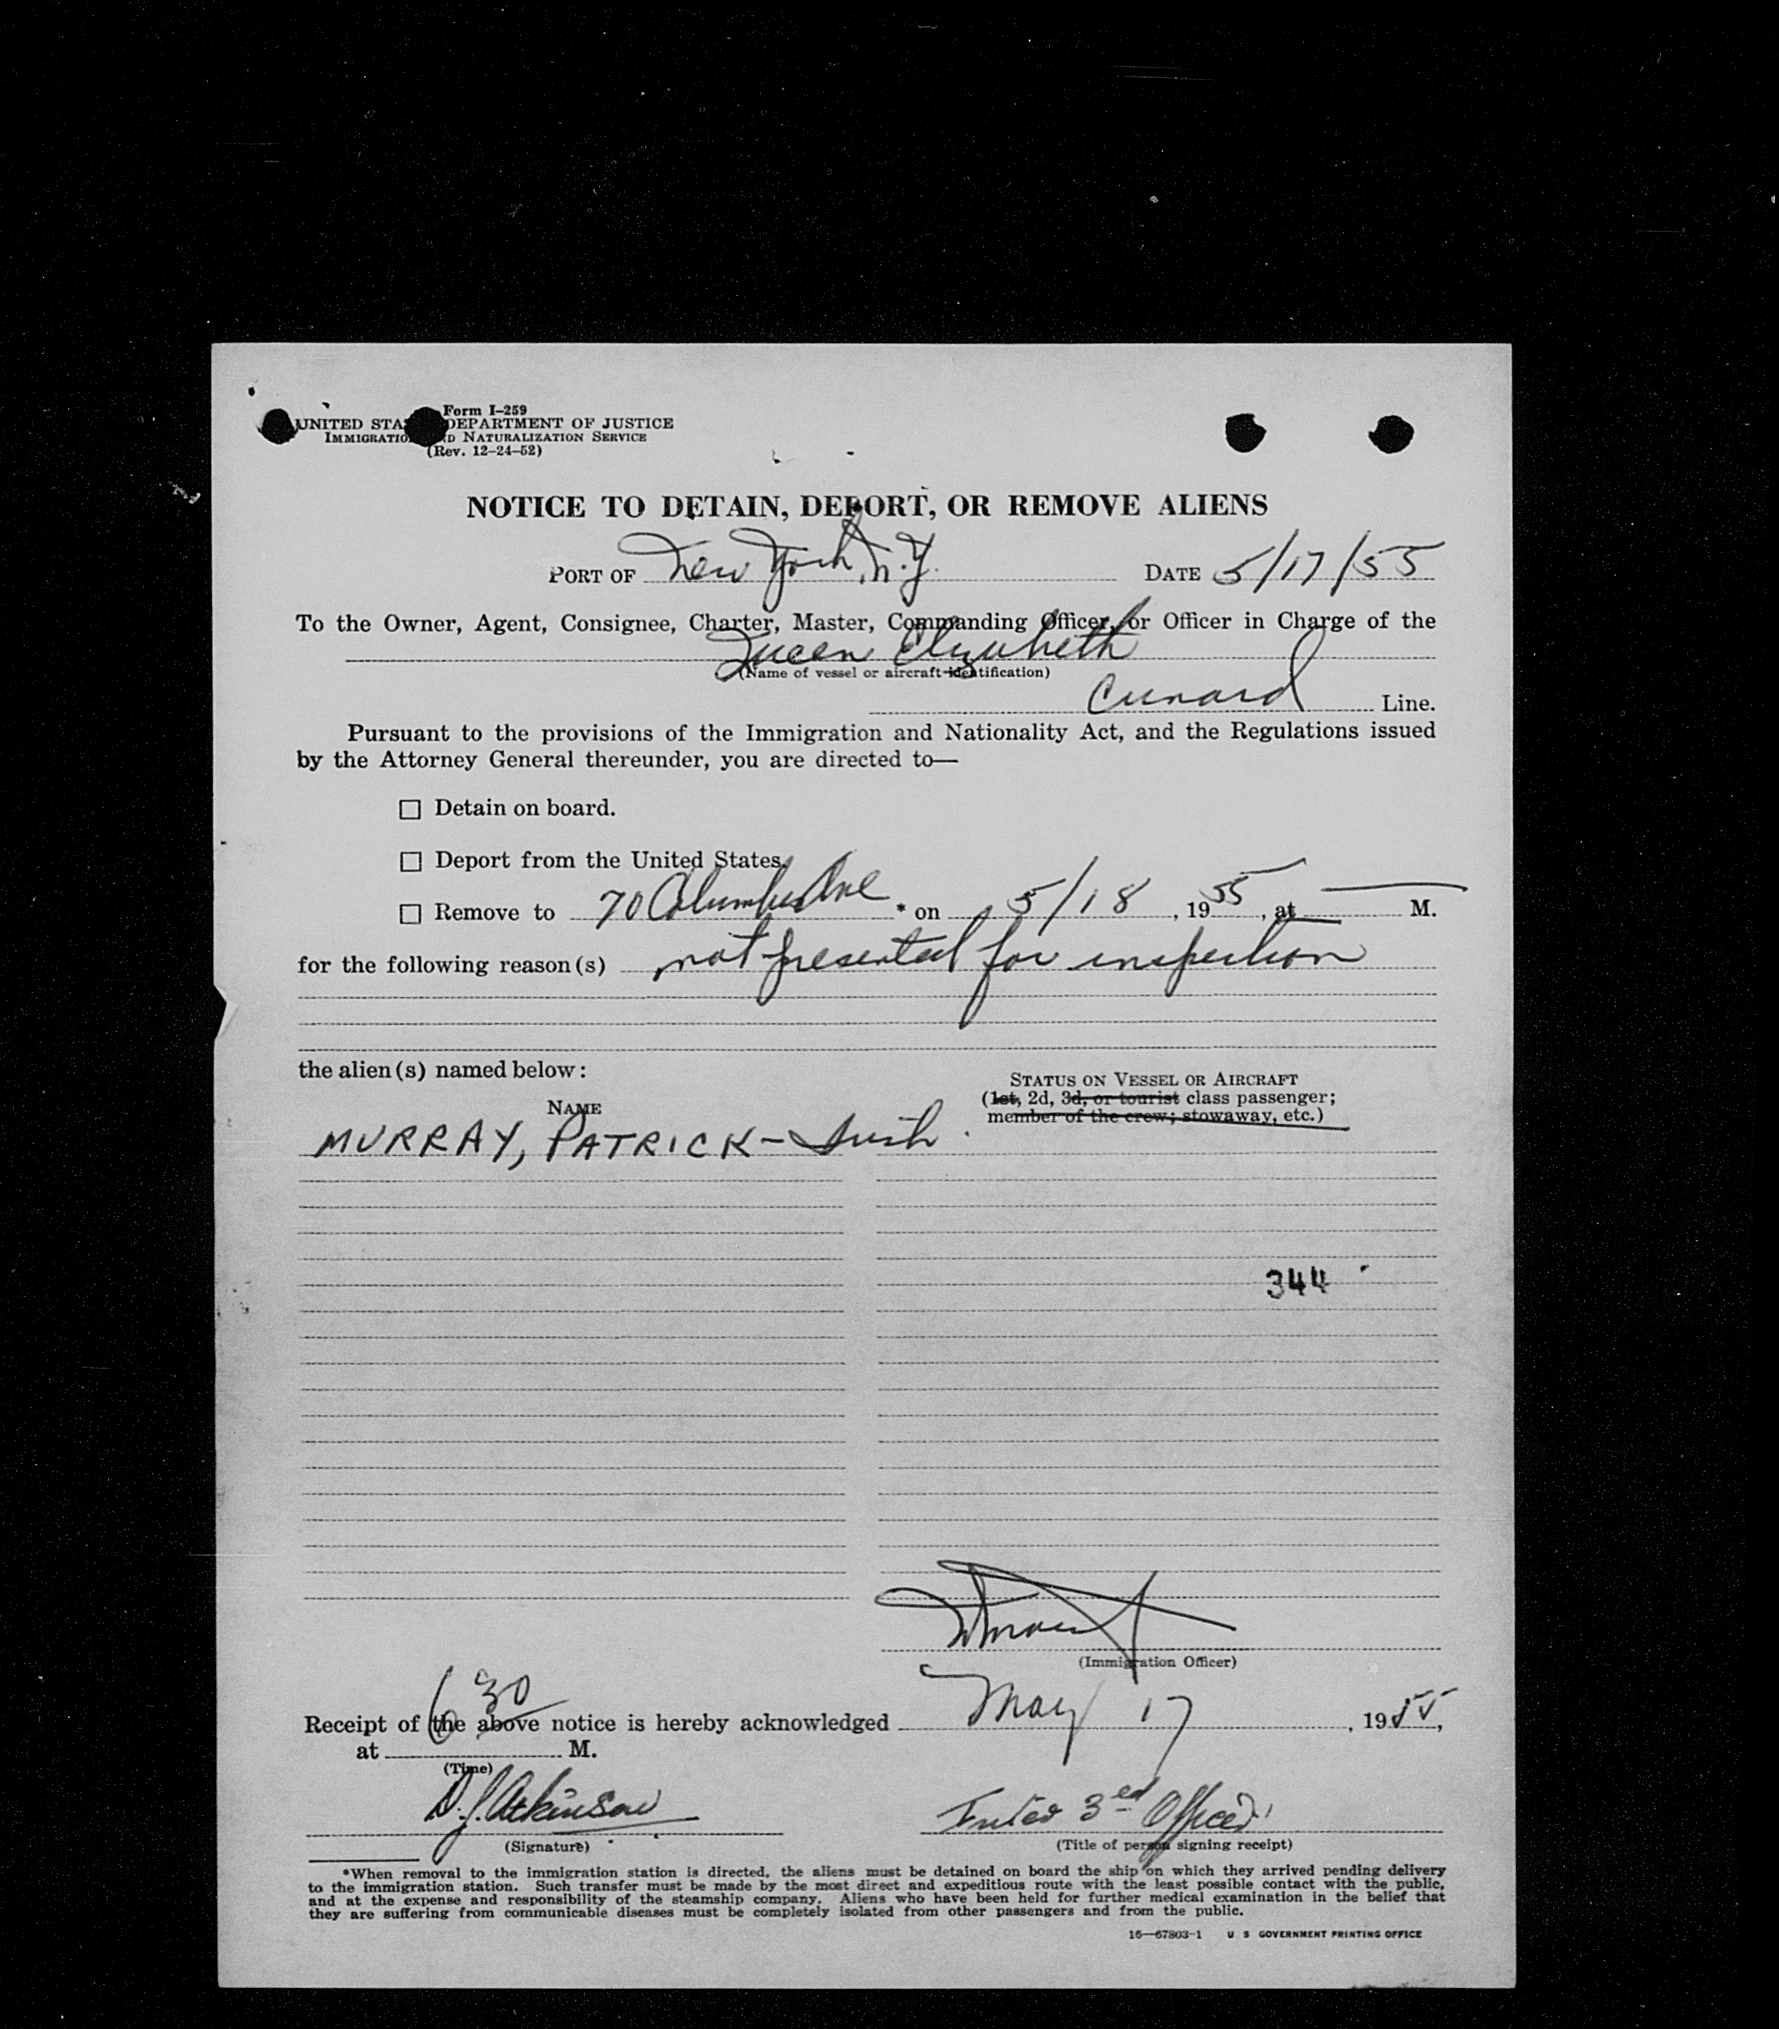 Form I-259
UNITED STA DEPARTMENT OF JUSTICE
IMMIGRATIO ND NATURALIZATION SERVICE
(Rev. 12-24-52)
NOTICE TO DETAIN, DEPORT, OR REMOVE ALIENS
PORT OF New York, N.Y. DATE 5/17/55
To the Owner, Agent, Consignee, Charter, Master, Commanding Officer, or Officer in Charge of the
Queen Elizabeth
(Name of vessel or aircraft identification)
Cunard Line.
Pursuant to the provisions of the Immigration and Nationality Act, and the Regulations issued
by the Attorney General thereunder, you are directed to—
☐ Detain on board.
☐ Deport from the United States.
☐ Remove to 70 Columbus Ave * on 5/18, 1955, at — M.
for the following reason(s) not presented for inspection
the alien(s) named below:
STATUS ON VESSEL OR AIRCRAFT
(1st, 2d, 3d, or tourist class passenger;
member of the crew; stowaway, etc.)
NAME
MURRAY, PATRICK - Irish
344
(Immigration Officer)
Receipt of the above notice is hereby acknowledged May 17, 1955,
at 6 30 M.
(Time)
D.J. Atkinson 3rd Officer
(Signature) (Title of person signing receipt)
*When removal to the immigration station is directed, the aliens must be detained on board the ship on which they arrived pending delivery
to the immigration station. Such transfer must be made by the most direct and expeditious route with the least possible contact with the public,
and at the expense and responsibility of the steamship company. Aliens who have been held for further medical examination in the belief that
they are suffering from communicable diseases must be completely isolated from other passengers and from the public.
16—67803-1 U S GOVERNMENT PRINTING OFFICE